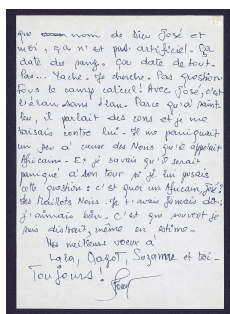 que nom de Dieu José et
moi, ça n'est pas artificiel. Ça
date du pays. Ça date de tout.
Pas... Vache. Je cherche. Pas question
tous le camp calcul! Avec José, c'est
l'élan sans élan. Parce qu'à saint-
leu, il parlait des cons et je me
taisais contre lui. Je me paniquait
un peu à cause des Noirs qu'il appelait
Africain. Et je savais qu'il serait
paniqué à son tour si je lui posais
cette question : c'est quoi un Africain José?
des Maillots Noirs. Je t'avais jamais dit :
j'aimais bien. C'est que souvent je
suis distrait, même en estime.
Mes meilleurs voeux à
Lala, Magot, Suzanne et toi-
Toujours!